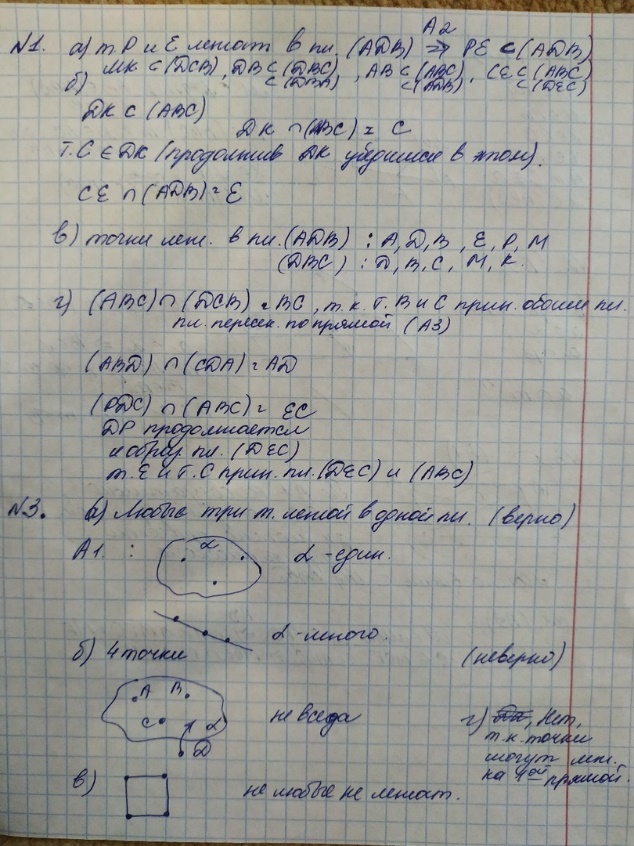 А2
№1. а) т. Р и Е лежат в пл. (АDВ) ⇒ РЕ ⊂ (АDВ)
б) МК ⊂ (DСВ), DВ ⊂ (DВС), АВ ⊂ (АВС), СЕ ⊂ (АВС)
⊂ (DВА) ⊂ (АDВ) ⊂ (DЕС)
DК ⊂ (АВС)
DК ∩ (АВС) = С
т. С ∈ DК (продолжив DК убедимся в этом).
СЕ ∩ (АDВ) = Е
в) точки леж. в пл. (АDВ) : А, D, В, Е, Р, М
(DВС) : D, В, С, М, К.
г) (АВС) ∩ (DСВ) = ВС, т.к. т. В и С прин. обоим пл.
пл. пересек. по прямой (А3)
(АВD) ∩ (СDА) = АD
(РDС) ∩ (АВС) = ЕС
DР продолжается
и образ пл. (DЕС)
т. Е и т. С прин. пл. (DЕС) и (АВС)
№3. а) Любые три т. лежат в одной пл. (верно)
А1 : α α - един.
α - много.
б) 4 точки (неверно)
А В С α D не всегда
г) Нет,
т.к. точки
могут леж.
на 1ой прямой.
в) не любые не лежат.